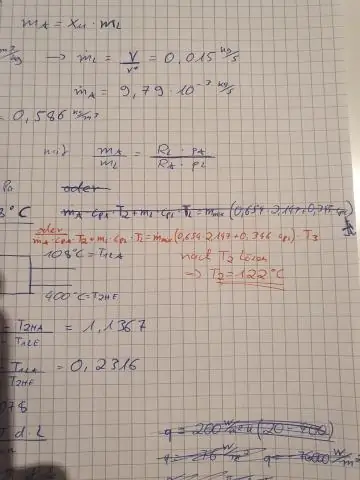 ṁ_A = X_u · ṁ_L
m³/kg → ṁ_L = V̇/v* = 0,015 kg/s
ṁ_A = 9,79 · 10⁻³ kg/s
= 0,586 kg/m³
mit m_A/m_L = R_L · p_A / R_A · p_L
oder
ṁ_A · c_pA · T_2 + ṁ_L · c_pL · T_1 = m_max (0,654 · 2,147 + 0,346 c_pL)
oder
ṁ_A · c_pA · T_2 + ṁ_L · c_pL · T_1 = m_max (0,654 · 2,147 + 0,346 · c_pL) · T_3
108°C = T_1LA
nach T_2 lösen
→ T_2 = 122°C
400°C = T_2HE
- T_2HA / T_1LE = 1,1367
- T_1LA / T_2HE = 0,2316
078
T d. L
q = 200 W/m²K (20 - 400)
q = -76 W/m² q = 76000 W/m²